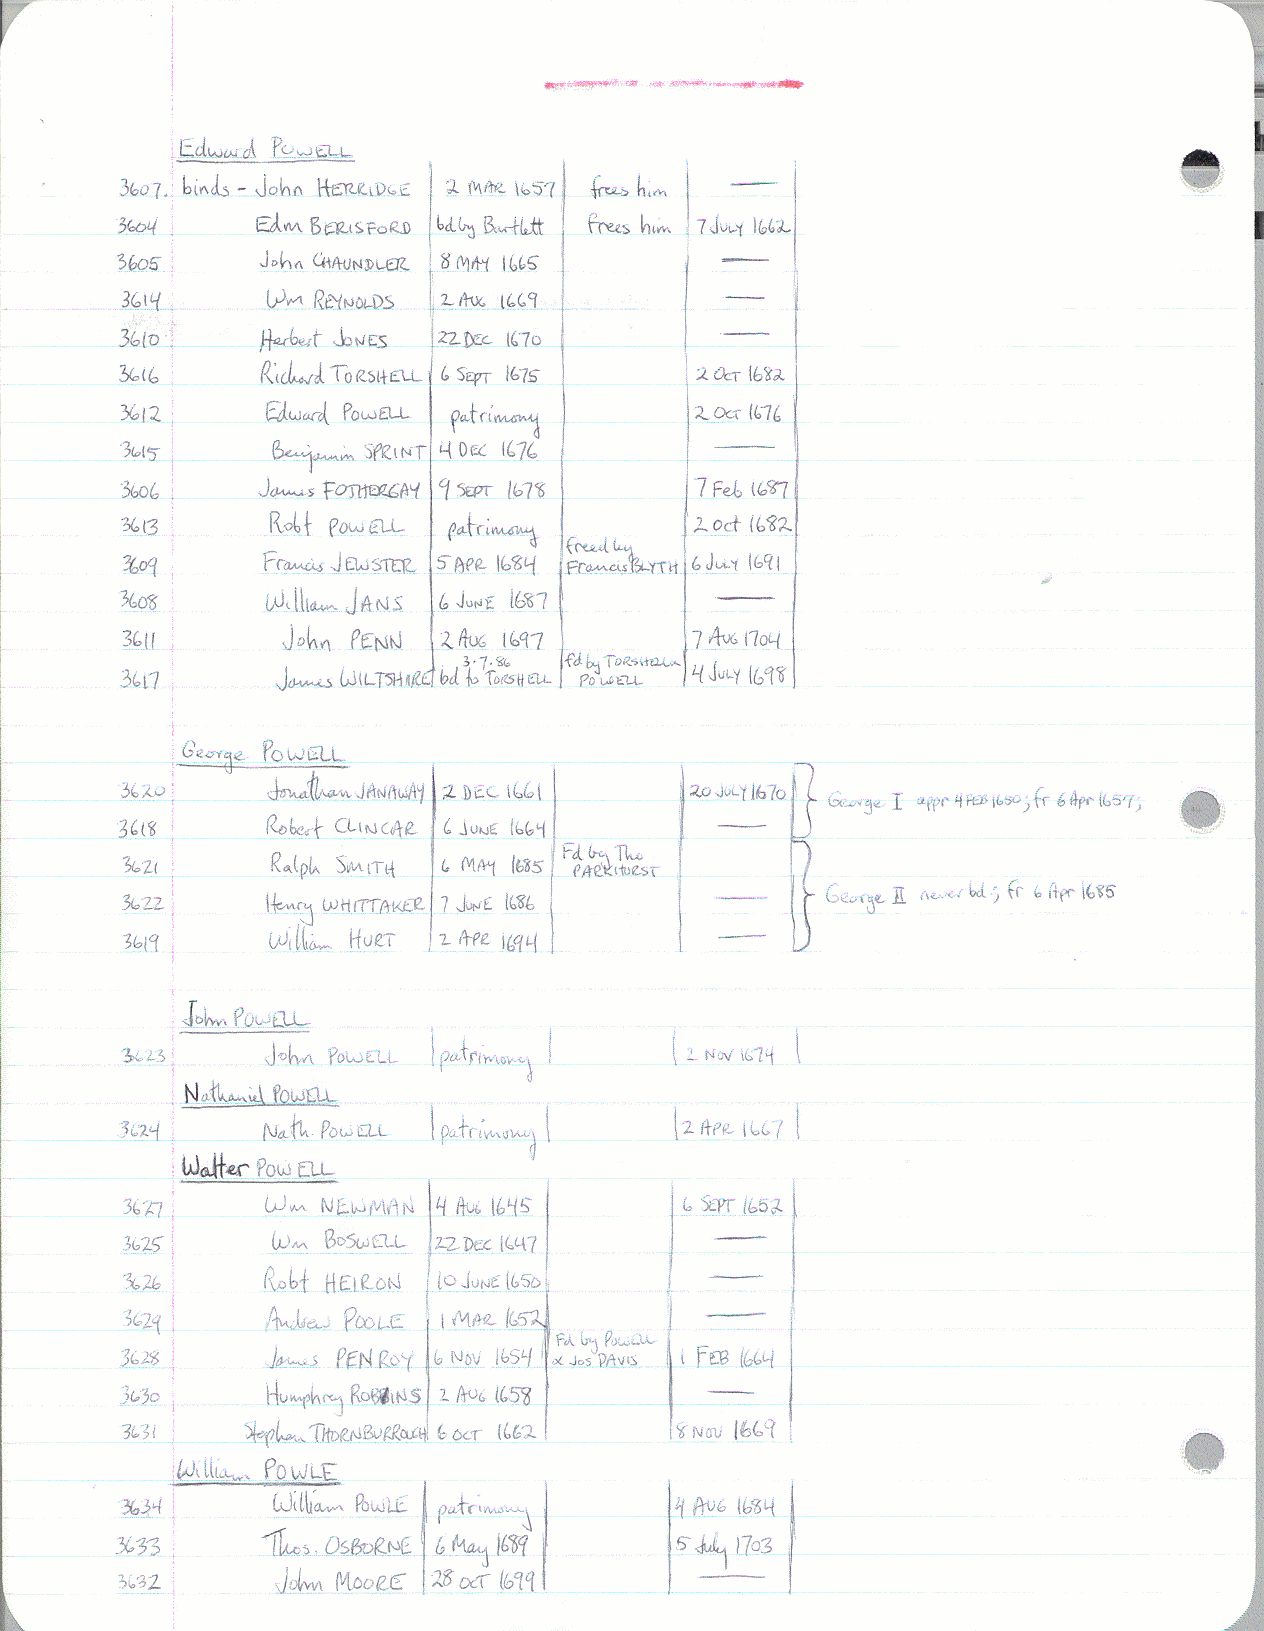 Edward POWELL
3607. binds - John HERRIDGE 2 MAR 1657 frees him —
3604 Edm BERISFORD bd by Bartlett frees him 7 JULY 1662
3605 John CHAUNDLER 8 MAY 1665 —
3614 Wm REYNOLDS 2 AUG 1669 —
3610 Herbert JONES 22 DEC 1670 —
3616 Richard TORSHELL 6 SEPT 1675 2 OCT 1682
3612 Edward POWELL patrimony 2 OCT 1676
3615 Benjamin SPRINT 4 DEC 1676 —
3606 James FOTHERGAY 9 SEPT 1678 7 Feb 1687
3613 Robt POWELL patrimony 2 Oct 1682
3609 Francis JEWSTER 5 APR 1684 freed by Francis BLYTH 6 JULY 1691
3608 William JANS 6 JUNE 1687 —
3611 John PENN 2 AUG 1697 7 AUG 1704
3617 James WILTSHIRE 3.7.86 bd to TORSHELL fd by TORSHELL POWELL 4 JULY 1698
George POWELL
3620 Jonathan JANAWAY 2 DEC 1661 20 JULY 1670 George I appr 4 FEB 1650; fr 6 Apr 1657;
3618 Robert CLINCAR 6 JUNE 1664 —
3621 Ralph SMITH 6 MAY 1685 Fd by Tho PARKHURST
3622 Henry WHITTAKER 7 JUNE 1686 — George II never bd.; fr 6 Apr 1685
3619 William HURT 2 APR 1694 —
John POWELL
3623 John POWELL patrimony 2 NOV 1674
Nathaniel POWELL
3624 Nath. POWELL patrimony 2 APR 1667
Walter POWELL
3627 Wm NEWMAN 4 AUG 1645 6 SEPT 1652
3625 Wm BOSWELL 22 DEC 1647 —
3626 Robt HEIRON 10 JUNE 1650 —
3629 Andrew POOLE 1 MAR 1652 —
3628 James PENROY 6 NOV 1654 Fd by POWELL & Jos DAVIS 1 FEB 1664
3630 Humphrey ROBINS 2 AUG 1658 —
3631 Stephen THORNBURROUGH 6 OCT 1662 8 NOV 1669
William POWLE
3634 William POWLE patrimony 4 AUG 1684
3633 Thos. OSBORNE 6 May 1689 5 July 1703
3632 John MOORE 28 OCT 1699 —